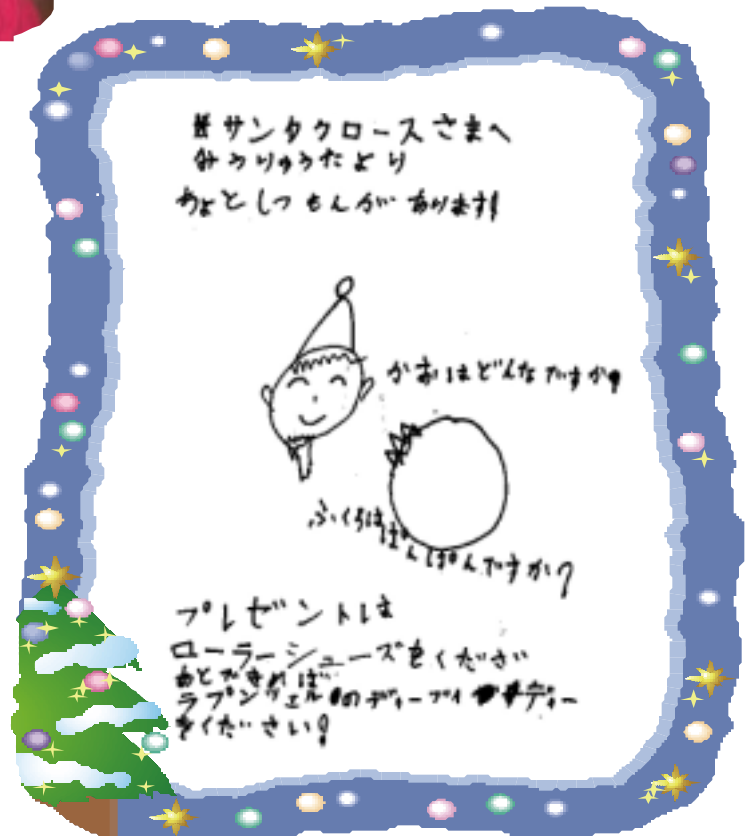 サンタクロースさまへ
よりゅうたより
ちょとしつもんがあります!
かおはどんなですか?
ふくろはぱんぱんですか?
プレゼントは
ローラーシューズをくださ
あとできれば
ラプンツェルのディーブイディー
をください!